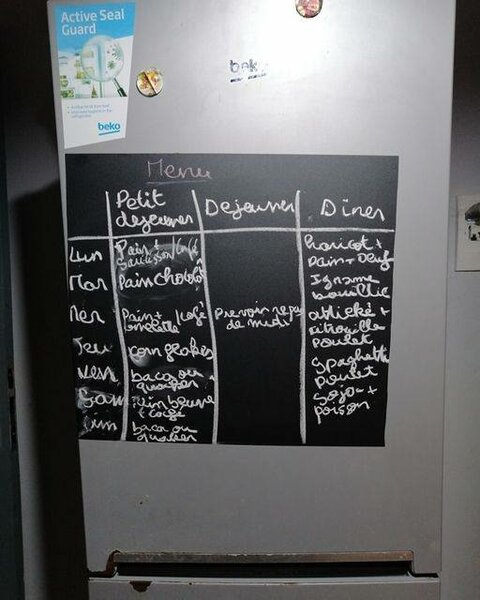 Active Seal
Guard
beko
beko
Menu
Petit
dejeuner
Dejeuner
Diner
Lun
Pain +
saucisson /Café
haricot +
Pain + Oeuf
Mar
Pain chocolat
Igname
bouillie
Mer
Pain + /café
omelette
Prevoir repas
de midi
attiéké +
citrouille
poulet
Jeu
corn flakes
Spaghetti
poulet
Ven
baca ou
quaker
Sam
Pain beurre
+ café
soja +
poisson
Dim
baca ou
quaker